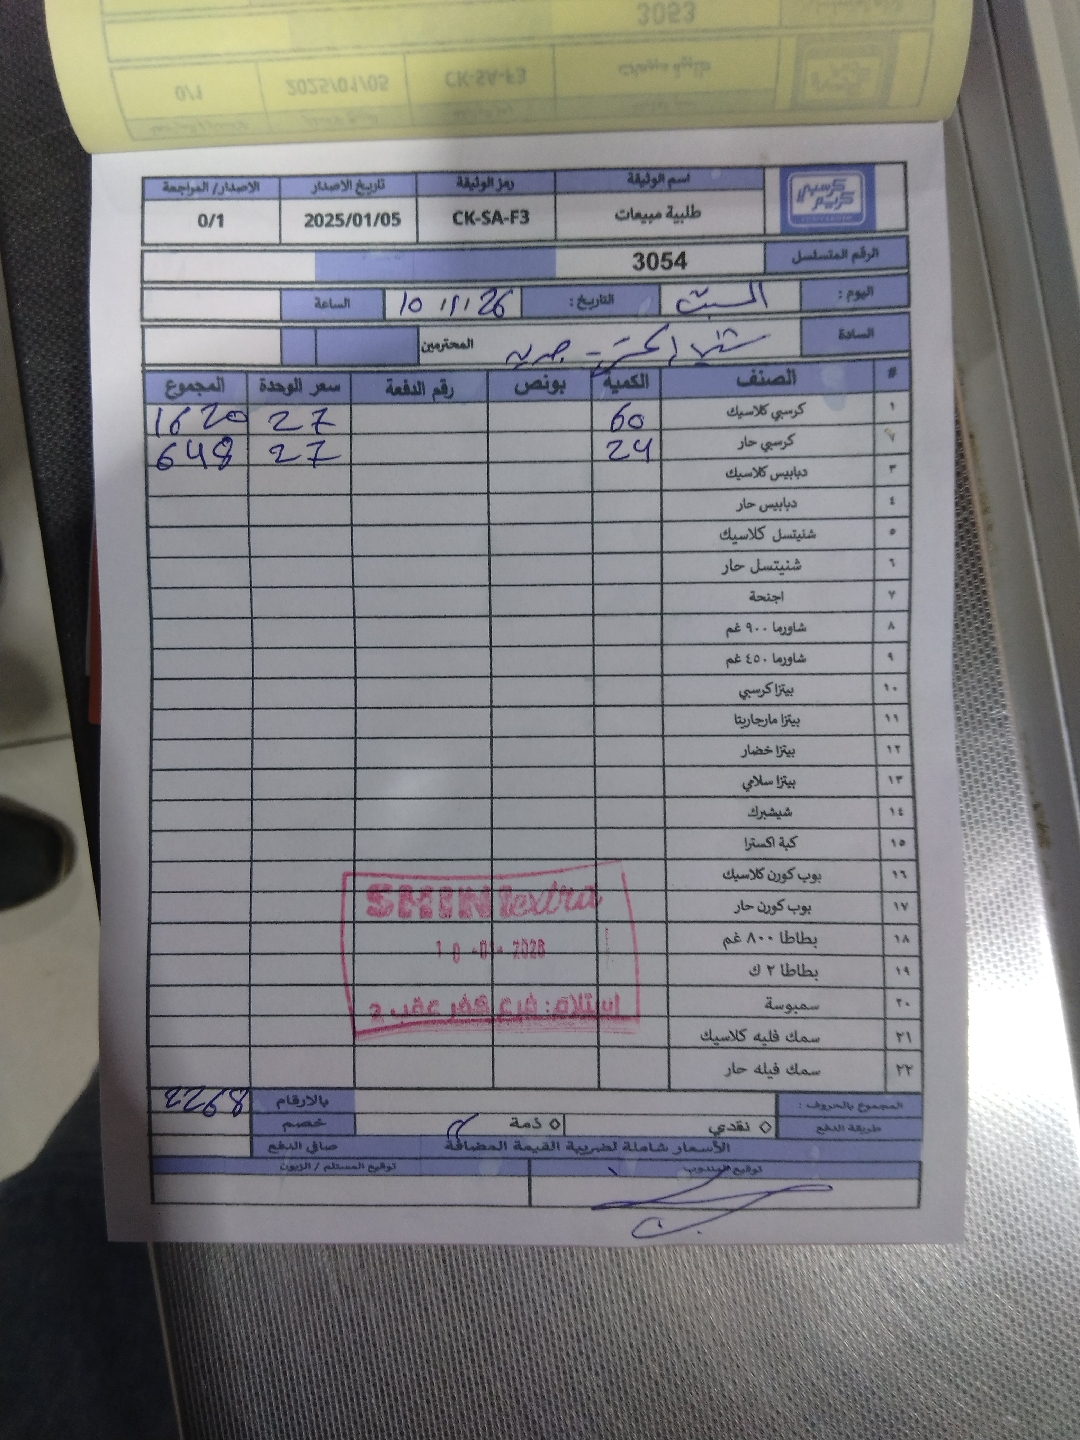 اسم الوثيقة رمز الوثيقة تاريخ الاصدار الاصدار/ المراجعة
كرسبي كريم
طلبية مبيعات CK-SA-F3 2025/01/05 0/1
الرقم المتسلسل 3054
اليوم : السبت التاريخ : 10 /1/26 الساعة
السادة المحترمين
# الصنف الكمية بونص رقم الدفعة سعر الوحدة المجموع
١ كرسبي كلاسيك 60 27 1620
٢ كرسبي حار 24 27 648
٣ دبابيس كلاسيك
٤ دبابيس حار
٥ شنيتسل كلاسيك
٦ شنيتسل حار
٧ اجنحة
٨ شاورما ٩٠٠ غم
٩ شاورما ٤٥٠ غم
١٠ بيتزا كرسبي
١١ بيتزا مارجاريتا
١٢ بيتزا خضار
١٣ بيتزا سلامي
١٤ شيشبرك
١٥ كبة اكسترا
١٦ بوب كورن كلاسيك
١٧ بوب كورن حار
١٨ بطاطا ٨٠٠ غم
١٩ بطاطا ٢ ك
٢٠ سمبوسة
٢١ سمك فليه كلاسيك
٢٢ سمك فيله حار
extra
2026
استلام: فرع كفر عقب 2
المجموع بالحروف : بالارقام 2268
طريقة الدفع ◇ نقدي ◇ ذمة خصم
الأسعار شاملة لضريبة القيمة المضافة صافي الدفع
توقيع المندوب توقيع المستلم / الزبون